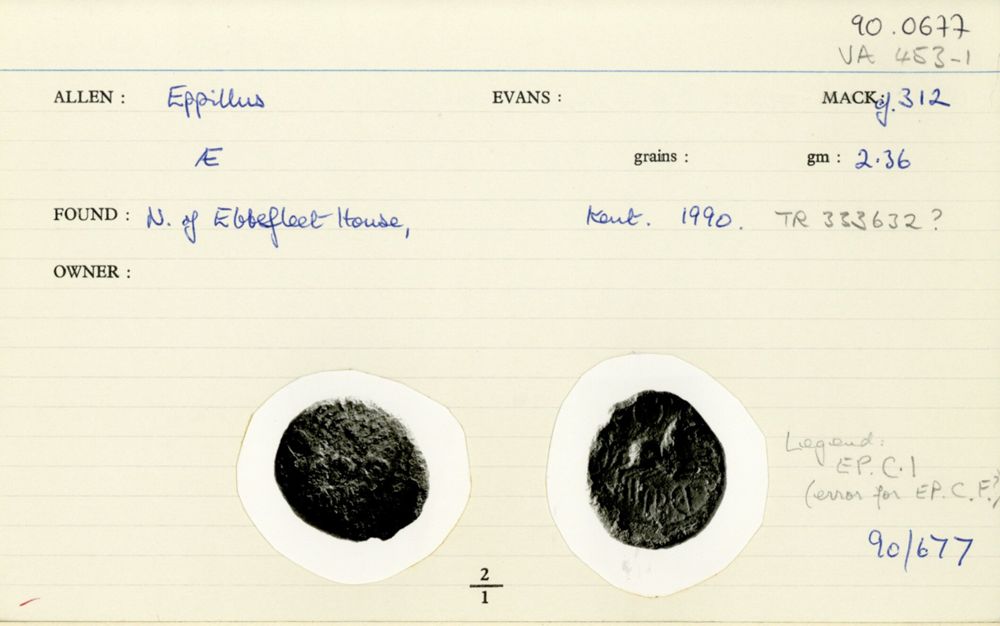 90.0677
VA 453-1
ALLEN : Eppillus EVANS : MACK: cf. 312
Æ grains : gm : 2.36
FOUND : N. of Ebbefleet House, Kent. 1990. TR 333632?
OWNER :
Legend:
EP. C. I
(error for EP. C. F.?)
90/677
2
1